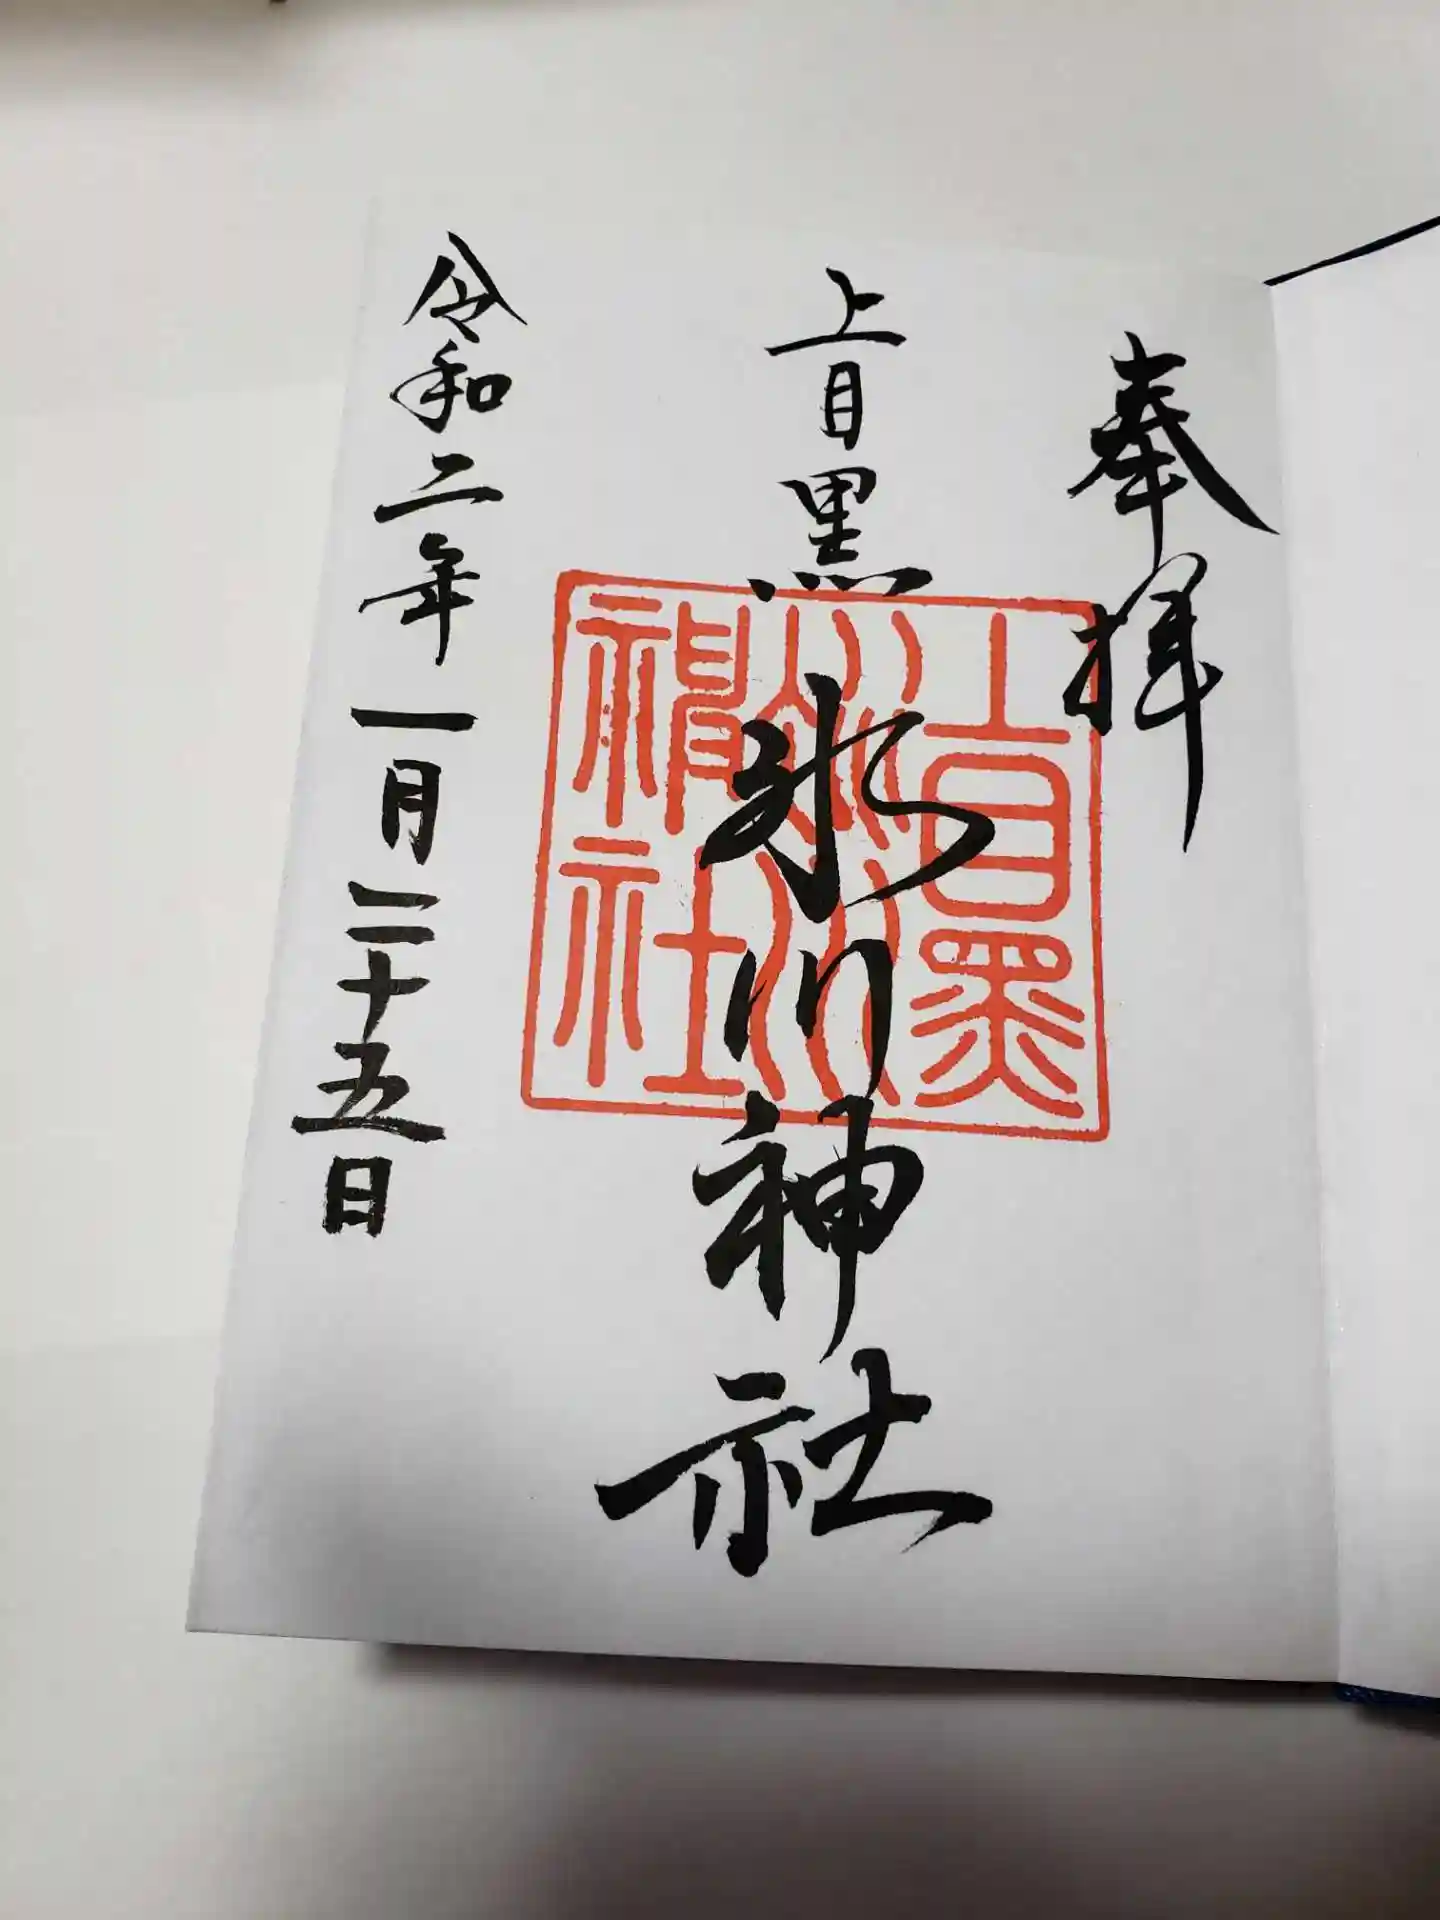 奉拝
上目黒
氷川神社
上目黒
氷川
神社
令和二年一月二十五日